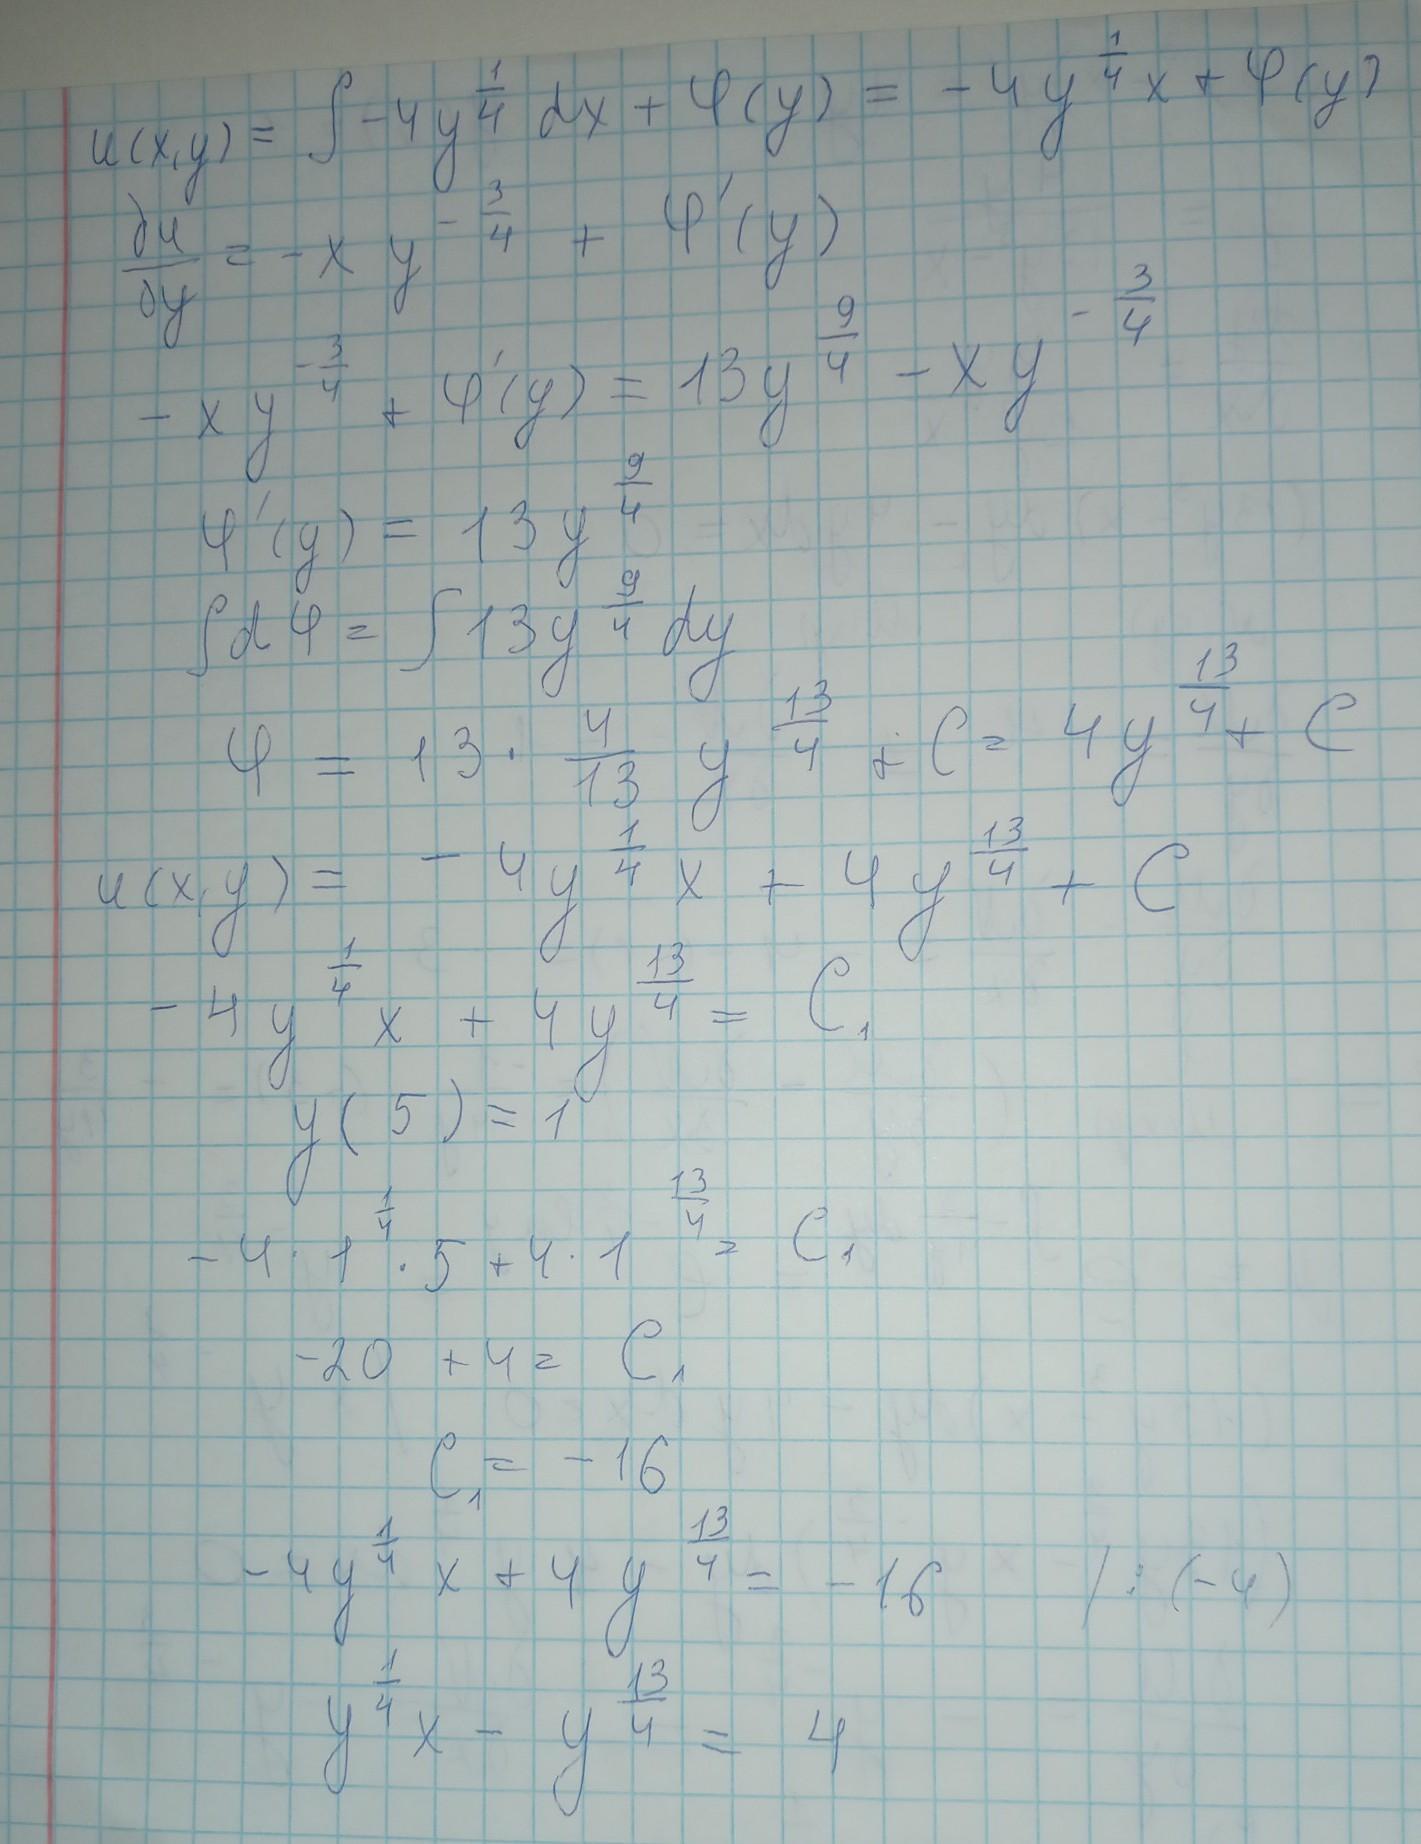 u(x,y) = ∫ -4y^{1/4} dx + φ(y) = -4y^{1/4} x + φ(y)
∂u/∂y = -x y^{-3/4} + φ'(y)
-x y^{-3/4} + φ'(y) = 13y^{9/4} - x y^{-3/4}
φ'(y) = 13y^{9/4}
∫dφ = ∫13y^{9/4} dy
φ = 13 · 4/13 y^{13/4} + C = 4y^{13/4} + C
u(x,y) = -4y^{1/4} x + 4y^{13/4} + C
-4y^{1/4} x + 4y^{13/4} = C₁
y(5) = 1
-4 · 1^{1/4} · 5 + 4 · 1^{13/4} = C₁
-20 + 4 = C₁
C₁ = -16
-4y^{1/4} x + 4y^{13/4} = -16 /:(-4)
y^{1/4} x - y^{13/4} = 4